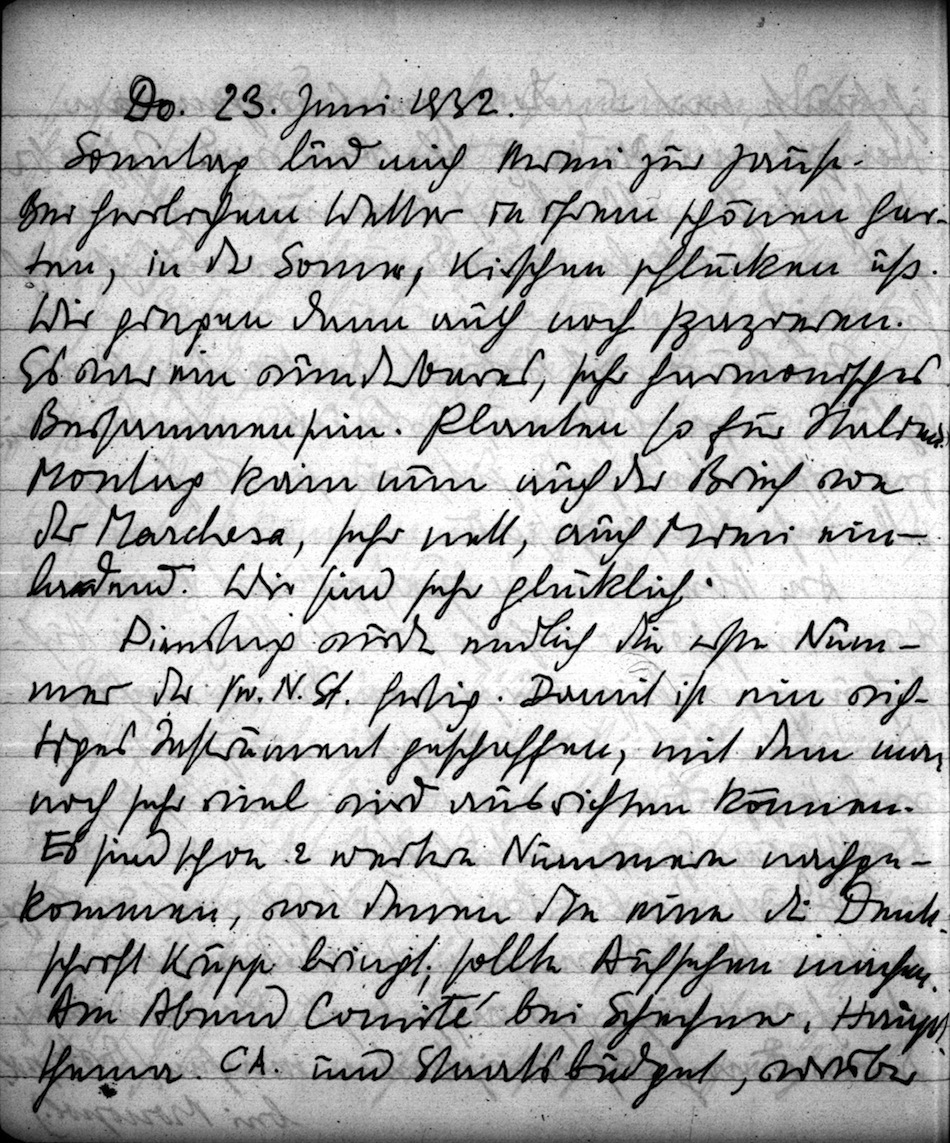 Do. 23. Juni 1932.
Sonntag lud mich Mimi zur Jause.
Bei herrlichem Wetter in ihrem schönen Gar-
ten, in der Sonne, Kirschen pflücken usf.
Wir gingen dann auch noch spazieren.
Es war ein wunderbares, sehr harmonisches
Beisammensein. Planten so für Italien.
Montag kam nun auch der Brief von
der Marchesa, sehr nett, auch Mimi ein-
ladend. Wir sind sehr glücklich.
Dienstag wurde endlich die erste Num-
mer der W. N. St. fertig. Damit ist ein wich-
tiges Instrument geschaffen, mit dem man
noch sehr viel wird ausrichten können.
Es sind schon 2 weitere Nummern nachge-
kommen, von denen die eine die Denk-
schrift Krupp bringt, sollte Aufsehen machen.
Am Abend Comité bei Schechner, Haupt
thema CA. und Staatsbudget, worüber